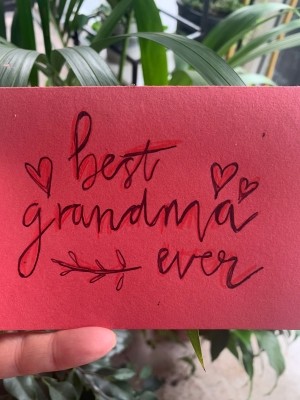 best
grandma
ever